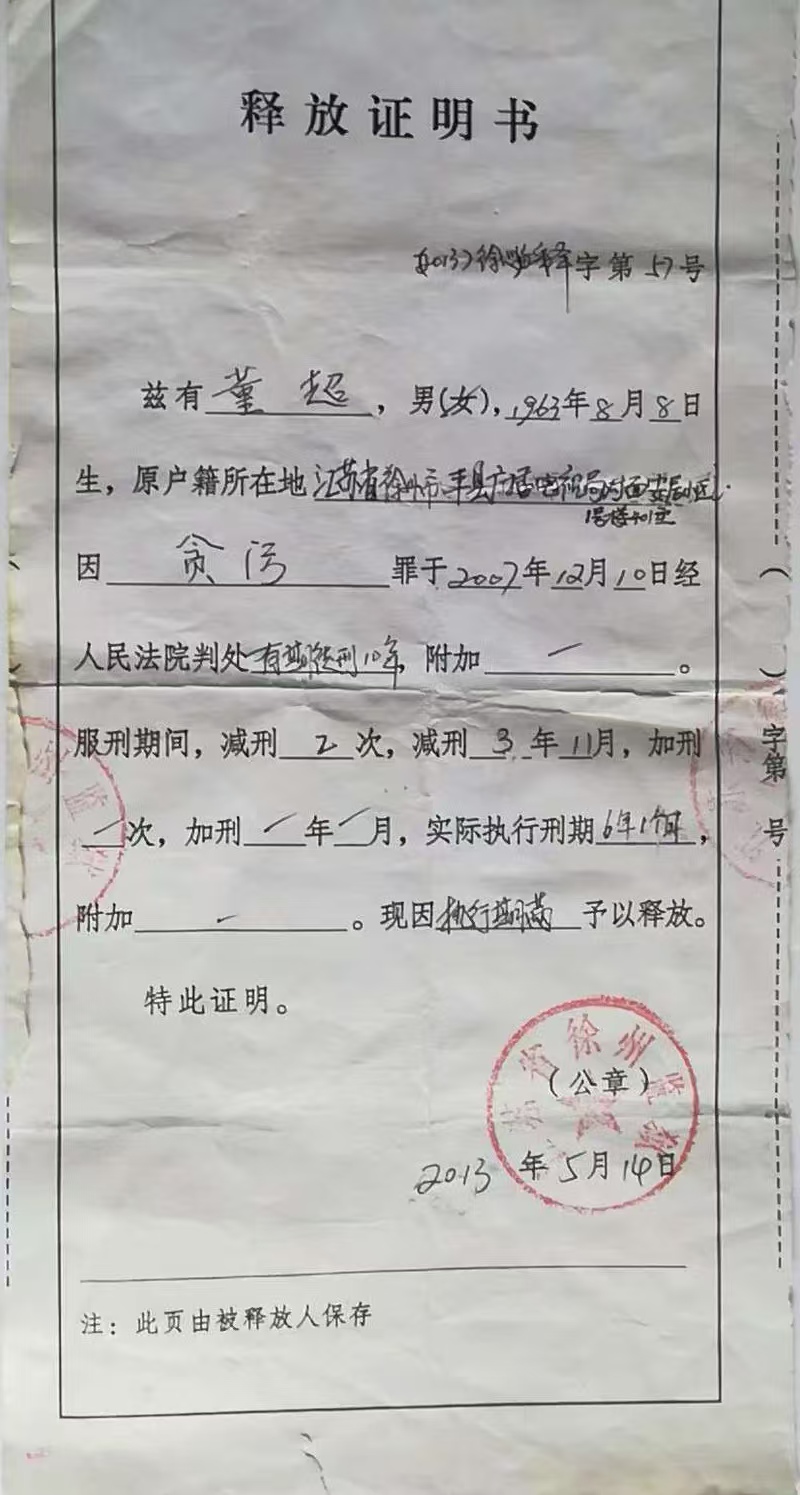 释放证明书
(2013)徐监释字第57号
兹有董超,男(女),1963年8月8日
生,原户籍所在地江苏省徐州市丰县广播电视局
1号楼401室
因贪污罪于2007年12月10日经
人民法院判处有期徒刑10年,附加一。
服刑期间,减刑2次,减刑3年11月,加刑
一次,加刑一年一月,实际执行刑期6年1个月,
附加一。现因执行期满予以释放。
特此证明。
(公章)
苏省徐州监狱
2013年5月14日
注:此页由被释放人保存
( )字第 号